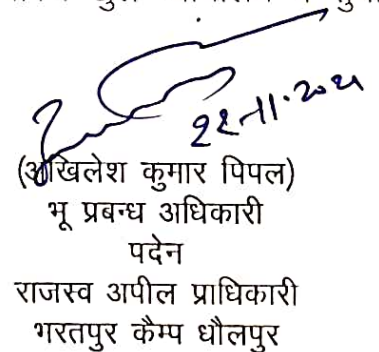 22-11-2021
(अखिलेश कुमार पिपल)
भू प्रबन्ध अधिकारी
पदेन
राजस्व अपील प्राधिकारी
भरतपुर कैम्प धौलपुर